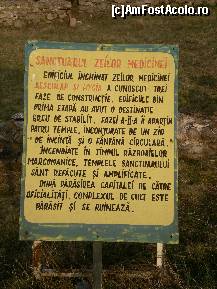 (c)AmFostAcolo.ro
SANCTUARUL ZEILOR MEDICINEI
EDIFICIUL ÎNCHINAT ZEILOR MEDICINEI
AESCULAP SI HYGIA A CUNOSCUT TREI
FAZE DE CONSTRUCȚIE. EDIFICIILE DIN
PRIMA ETAPĂ AU AVUT O DESTINAȚIE
GREU DE STABILIT. FAZEI A-II-A ÎI APARȚIN
PATRU TEMPLE, ÎNCONJURATE DE UN ZID
DE INCINTĂ ȘI O FÎNTÎNĂ CIRCULARĂ.
INCENDIATE ÎN TIMPUL RĂZBOAIELOR
MARCOMANICE, TEMPLELE SANCTUARULUI
SÎNT REFĂCUTE ȘI AMPLIFICATE.
DUPĂ PĂRĂSIREA CAPITALEI DE CĂTRE
OFICIALITĂȚI, COMPLEXUL DE CULT ESTE
PĂRĂSIT ȘI SE RUINEAZĂ.